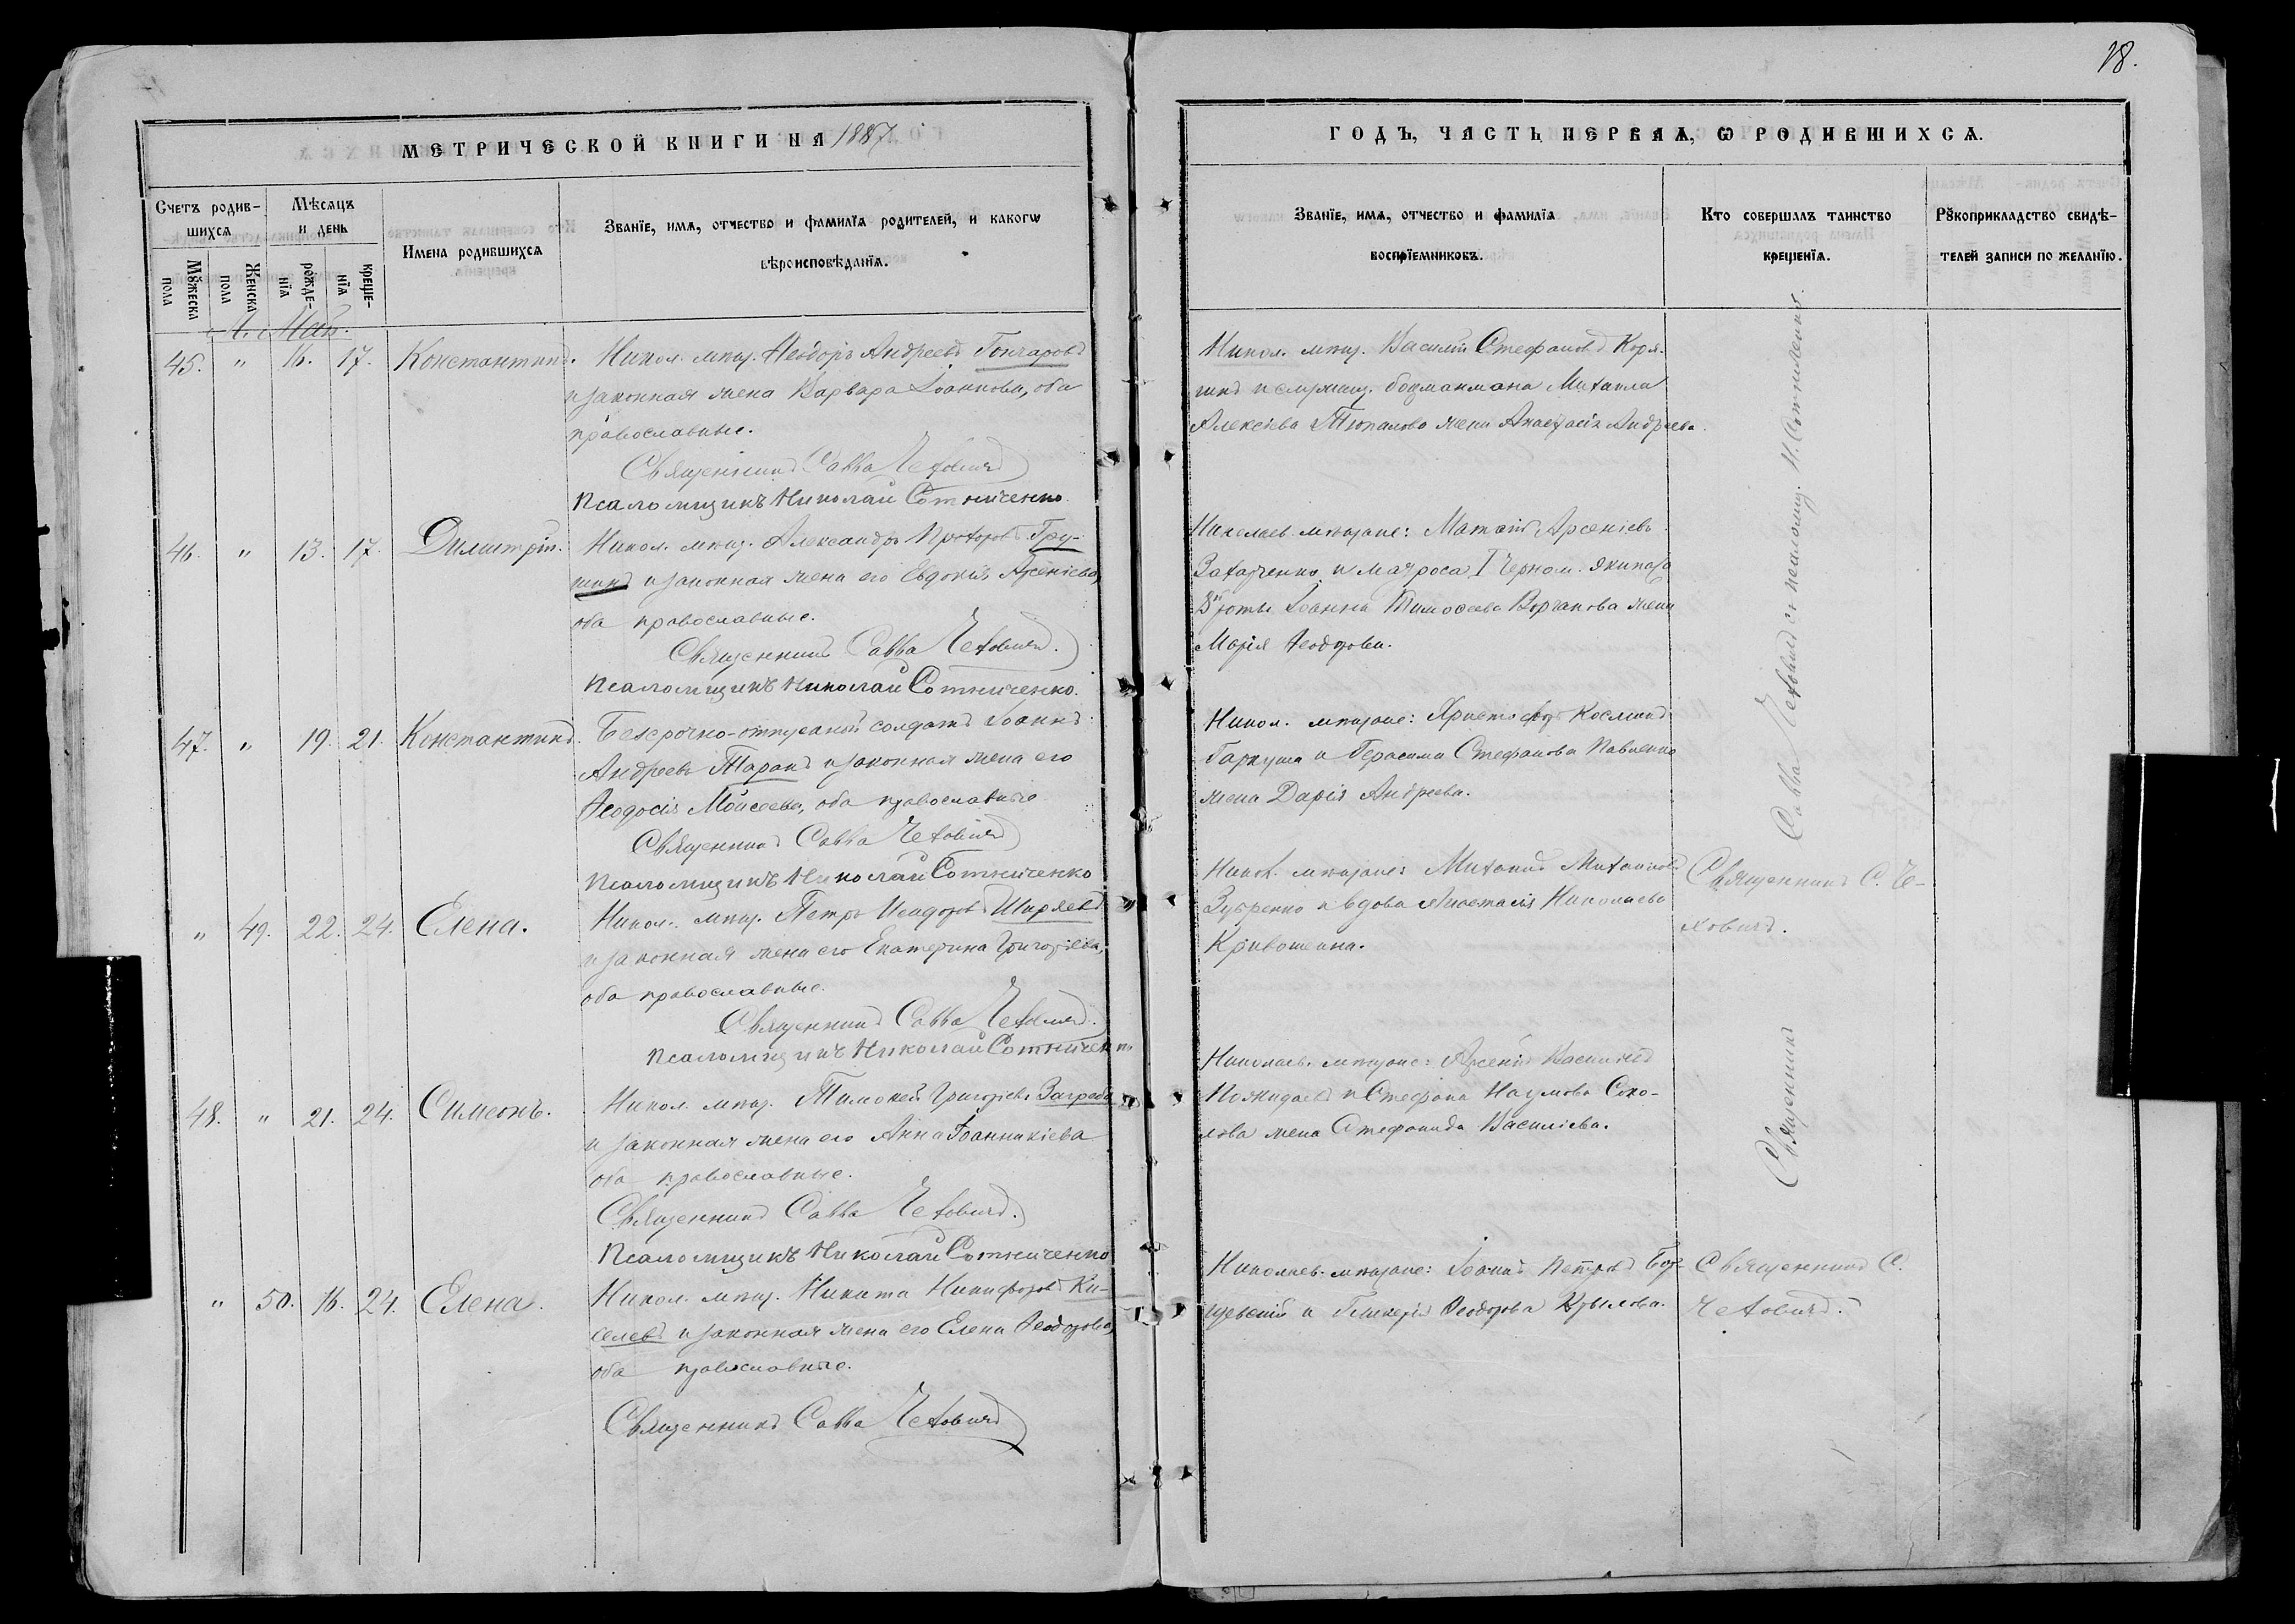 18.
МЕТРИЧЕСКОЙ КНИГИ НА 1887.
ГОДЪ, ЧАСТЬ ПЕРВАѦ, Ѡ РОДИВШИХСѦ.
Счетъ родив-
шихсѧ
Мѣсѧцъ
и день
Имена родившихсѧ
Званїе, имѧ, отчество и фамилїѧ родителей, и какогѡ
вѣроисповѣданїѧ.
Мꙋжеска
пола
Женска
пола
рожде-
нїѧ
креще-
нїѧ
Званїе, имѧ, отчество и фамилїѧ
воспрїемниковъ.
Кто совершалъ таинство
крещенїѧ.
Рꙋкоприкладство свидѣ-
телей записи по желанїю.
Май.
45. " 16. 17. Константинъ. Никол. мѣщ. Ѳеодоръ Андреевъ Гончаровъ
и законная жена Варвара Іоаннова, оба
православные.
Священникъ Савва Чеховичъ
Псаломщикъ Николай Сотниченко.
Никол. мѣщ. Василій Стефановъ
боцманмана Михаила
Алексѣева жена Анастасія Андреева.
46. " 13. 17. Димитрій. Никол. мѣщ. Александръ Гру-
шинъ и законная жена его Евдокія Арсеніева,
оба православные.
Священникъ Савва Чеховичъ.
Псаломщикъ Николай Сотниченко.
Николаев. мѣщане: Матвій Арсеніевъ
Захарченко и матроса I Черном. экипажа
роты Іоанна Тимоѳеева жена
Марія Ѳеодорова.
47. " 19. 21. Константинъ. Безсрочно-отпускной солдатъ Іоаннъ
Андреевъ Таранъ и законная жена его
Ѳеодосія Моисеева, оба православные
Священникъ Савва Чеховичъ
Псаломщикъ Николай Сотниченко
Никол. мѣщане: Христофоръ Косминъ
Гаркуша и Герасима Стефанова Павленко
жена Дарія Андреева.
" 49. 22. 24. Елена. Никол. мѣщ. Петръ Исидоровъ Ширяевъ
и законная жена его Екатерина Григоріева,
оба православные.
Священникъ Савва Чеховичъ.
Псаломщикъ Николай Сотниченко
Никол. мѣщане: Михаилъ Михаиловъ
Зубренко и вдова Анастасія Николаева
Кривошеина.
Священникъ С. Че-
ховичъ.
48. " 21. 24. Симеонъ. Никол. мѣщ. Тимоѳей Григоріевъ
и законная жена его Анна Іоанникіева
оба православные.
Священникъ Савва Чеховичъ.
Псаломщикъ Николай Сотниченко
Николаев. мѣщане: Арсеній Василіевъ
Пожидаевъ и Стефана Наумова Соко-
лова жена Стефанида Василіева.
" 50. 16. 24. Елена. Никол. мѣщ. Никита Никифоровъ Ки-
селевъ и законная жена его Елена Ѳеодорова,
оба православные.
Священникъ Савва Чеховичъ
Николаев. мѣщане: Іоаннъ Петровъ
и Гликерія Ѳеодорова Крылова.
Священникъ С.
Чеховичъ.
Священникъ Савва Чеховичъ и псаломщ. Н. Сотниченко.